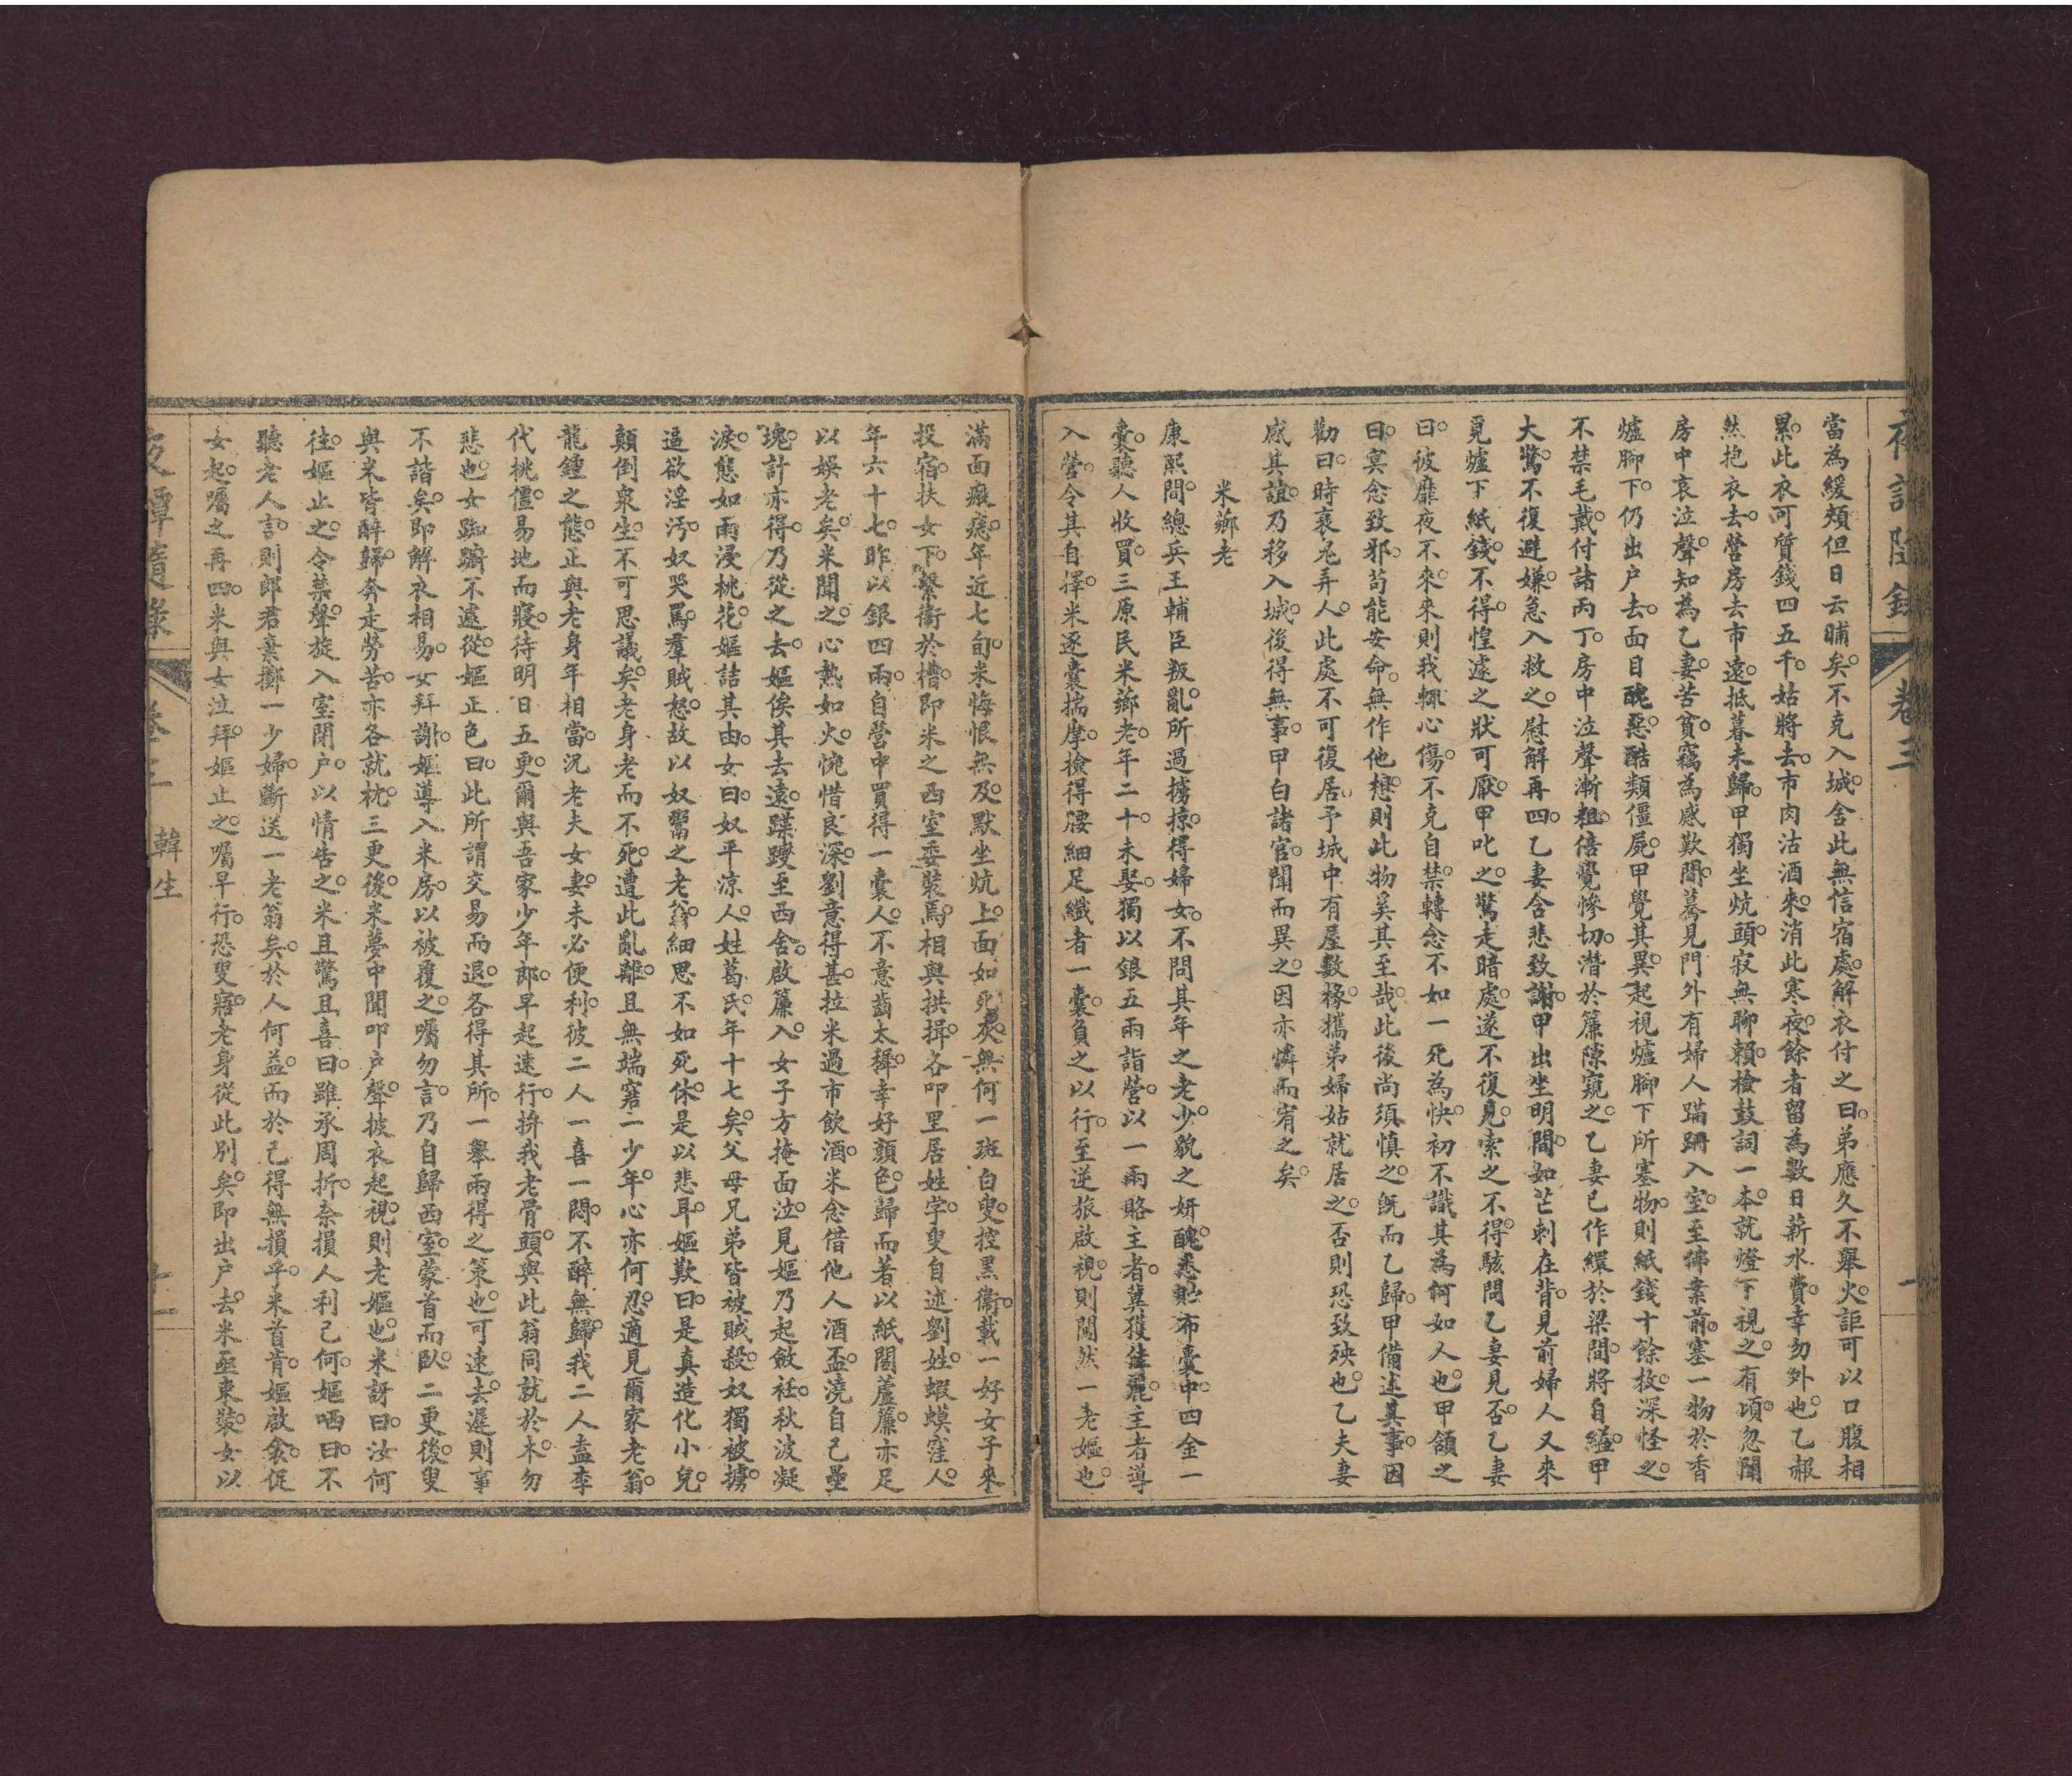 夜譚隨錄 卷三 一
當為緩頰但日云晡矣不克入城舍此無信宿處解衣付之曰弟應久不舉火詎可以口腹相
累此衣可質錢四五千姑將去市肉沽酒來消此寒夜餘者留為數日薪水費幸勿外也乙赧
然抱衣去營房去市遠抵暮未歸甲獨坐炕頭寂無聊賴檢鼓詞一本就燈下視之有頃忽聞
房中哀泣聲知為乙妻苦貧竊為感歎間驀見門外有婦人蹣跚入室至彿案前塞一物於香
爐腳下仍出户去面目醜惡酷類僵屍甲覺其異起視爐腳下所塞物則紙錢十餘枚深怪之
不禁毛戴付諸丙丁房中泣聲漸粗倍覺慘切潛於簾隙窺之乙妻已作繯於梁間將自縊甲
大驚不復避嫌急入救之慰解再四乙妻含悲致謝甲出坐明間如芒刺在背見前婦人又來
覓爐下紙錢不得惶遽之狀可厭甲叱之驚走暗處遂不復見索之不得駭問乙妻見否乙妻
曰彼靡夜不來來則我輒心傷不克自禁轉念不如一死為快初不識其為何如人也甲頷之
曰冥念致邪苟能安命無作他想則此物奚其至哉此後尚須慎之既而乙歸甲備述其事因
勸曰時衰鬼弄人此處不可復居予城中有屋數椽攜弟婦姑就居之否則恐致殃也乙夫妻
感其誼乃移入城後得無事甲白諸官聞而異之因亦憐而宥之矣
米薌老
康熙間總兵王輔臣叛亂所過擄掠得婦女不問其年之老少貌之妍醜悉貯布囊中四金一
囊聽人收買三原民米薌老年二十未娶獨以銀五兩詣營以一兩賂主者冀獲佳麗主者導
入營令其自擇米逐囊揣摩檢得腰細足纖者一囊負之以行至逆旅啟視則闖然一老嫗也
滿面瘢痣年近七旬米悔恨無及默坐炕上面如死灰無何一斑白叟控黑衞載一好女子來
投宿扶女下繫衞於槽即米之西室委裝焉相與拱揖各叩里居姓字叟自述劉姓蝦蟆窪人
年六十七昨以銀四兩自營中買得一囊人不意齒太穉幸好顏色歸而著以紙閣蘆簾亦足
以娛老矣米聞之心熱如火惋惜良深劉意得甚拉米過市飲酒米念借他人酒盃澆自己壘
塊計亦得乃從之去嫗俟其去遠蹀躞至西舍啟簾入女子方掩面泣見嫗乃起斂衽秋波凝
淚態如雨浸桃花嫗詰其由女曰奴平涼人姓葛氏年十七矣父母兄弟皆被賊殺奴獨被擄
逼欲淫汚奴哭罵羣賊怒故以奴鬻之老翁細思不如死休是以悲耳嫗歎曰是真造化小兒
顛倒衆生不可思議矣老身老而不死遭此亂離且無端窘一少年心亦何忍適見爾家老翁
龍鍾之態正與老身年相當況老夫女妻未必便利彼二人一喜一悶不醉無歸我二人盍李
代桃僵易地而寢待明日五更爾與吾家少年郎早起速行拚我老骨頭與此翁同就於木勿
悲也女踟躕不遽從嫗正色曰此所謂交易而退各得其所一舉兩得之策也可速去遲則事
不諧矣即解衣相易女拜謝嫗導入米房以被覆之囑勿言乃自歸西室蒙首而臥二更後叟
與米皆醉歸奔走勞苦亦各就枕三更後米夢中聞叩户聲披衣起視則老嫗也米訝曰汝何
往嫗止之令禁聲旋入室閉户以情告之米且驚且喜曰雖承周折奈損人利己何嫗哂曰不
聽老人言則郎君棄擲一少婦斷送一老翁矣於人何益而於己得無損乎米首肯嫗啟衾促
女起囑之再四米與女泣拜嫗止之囑早行恐叟寤老身從此別矣即出户去米亟束裝女以
夜譚隨錄 卷三 韓生 十一